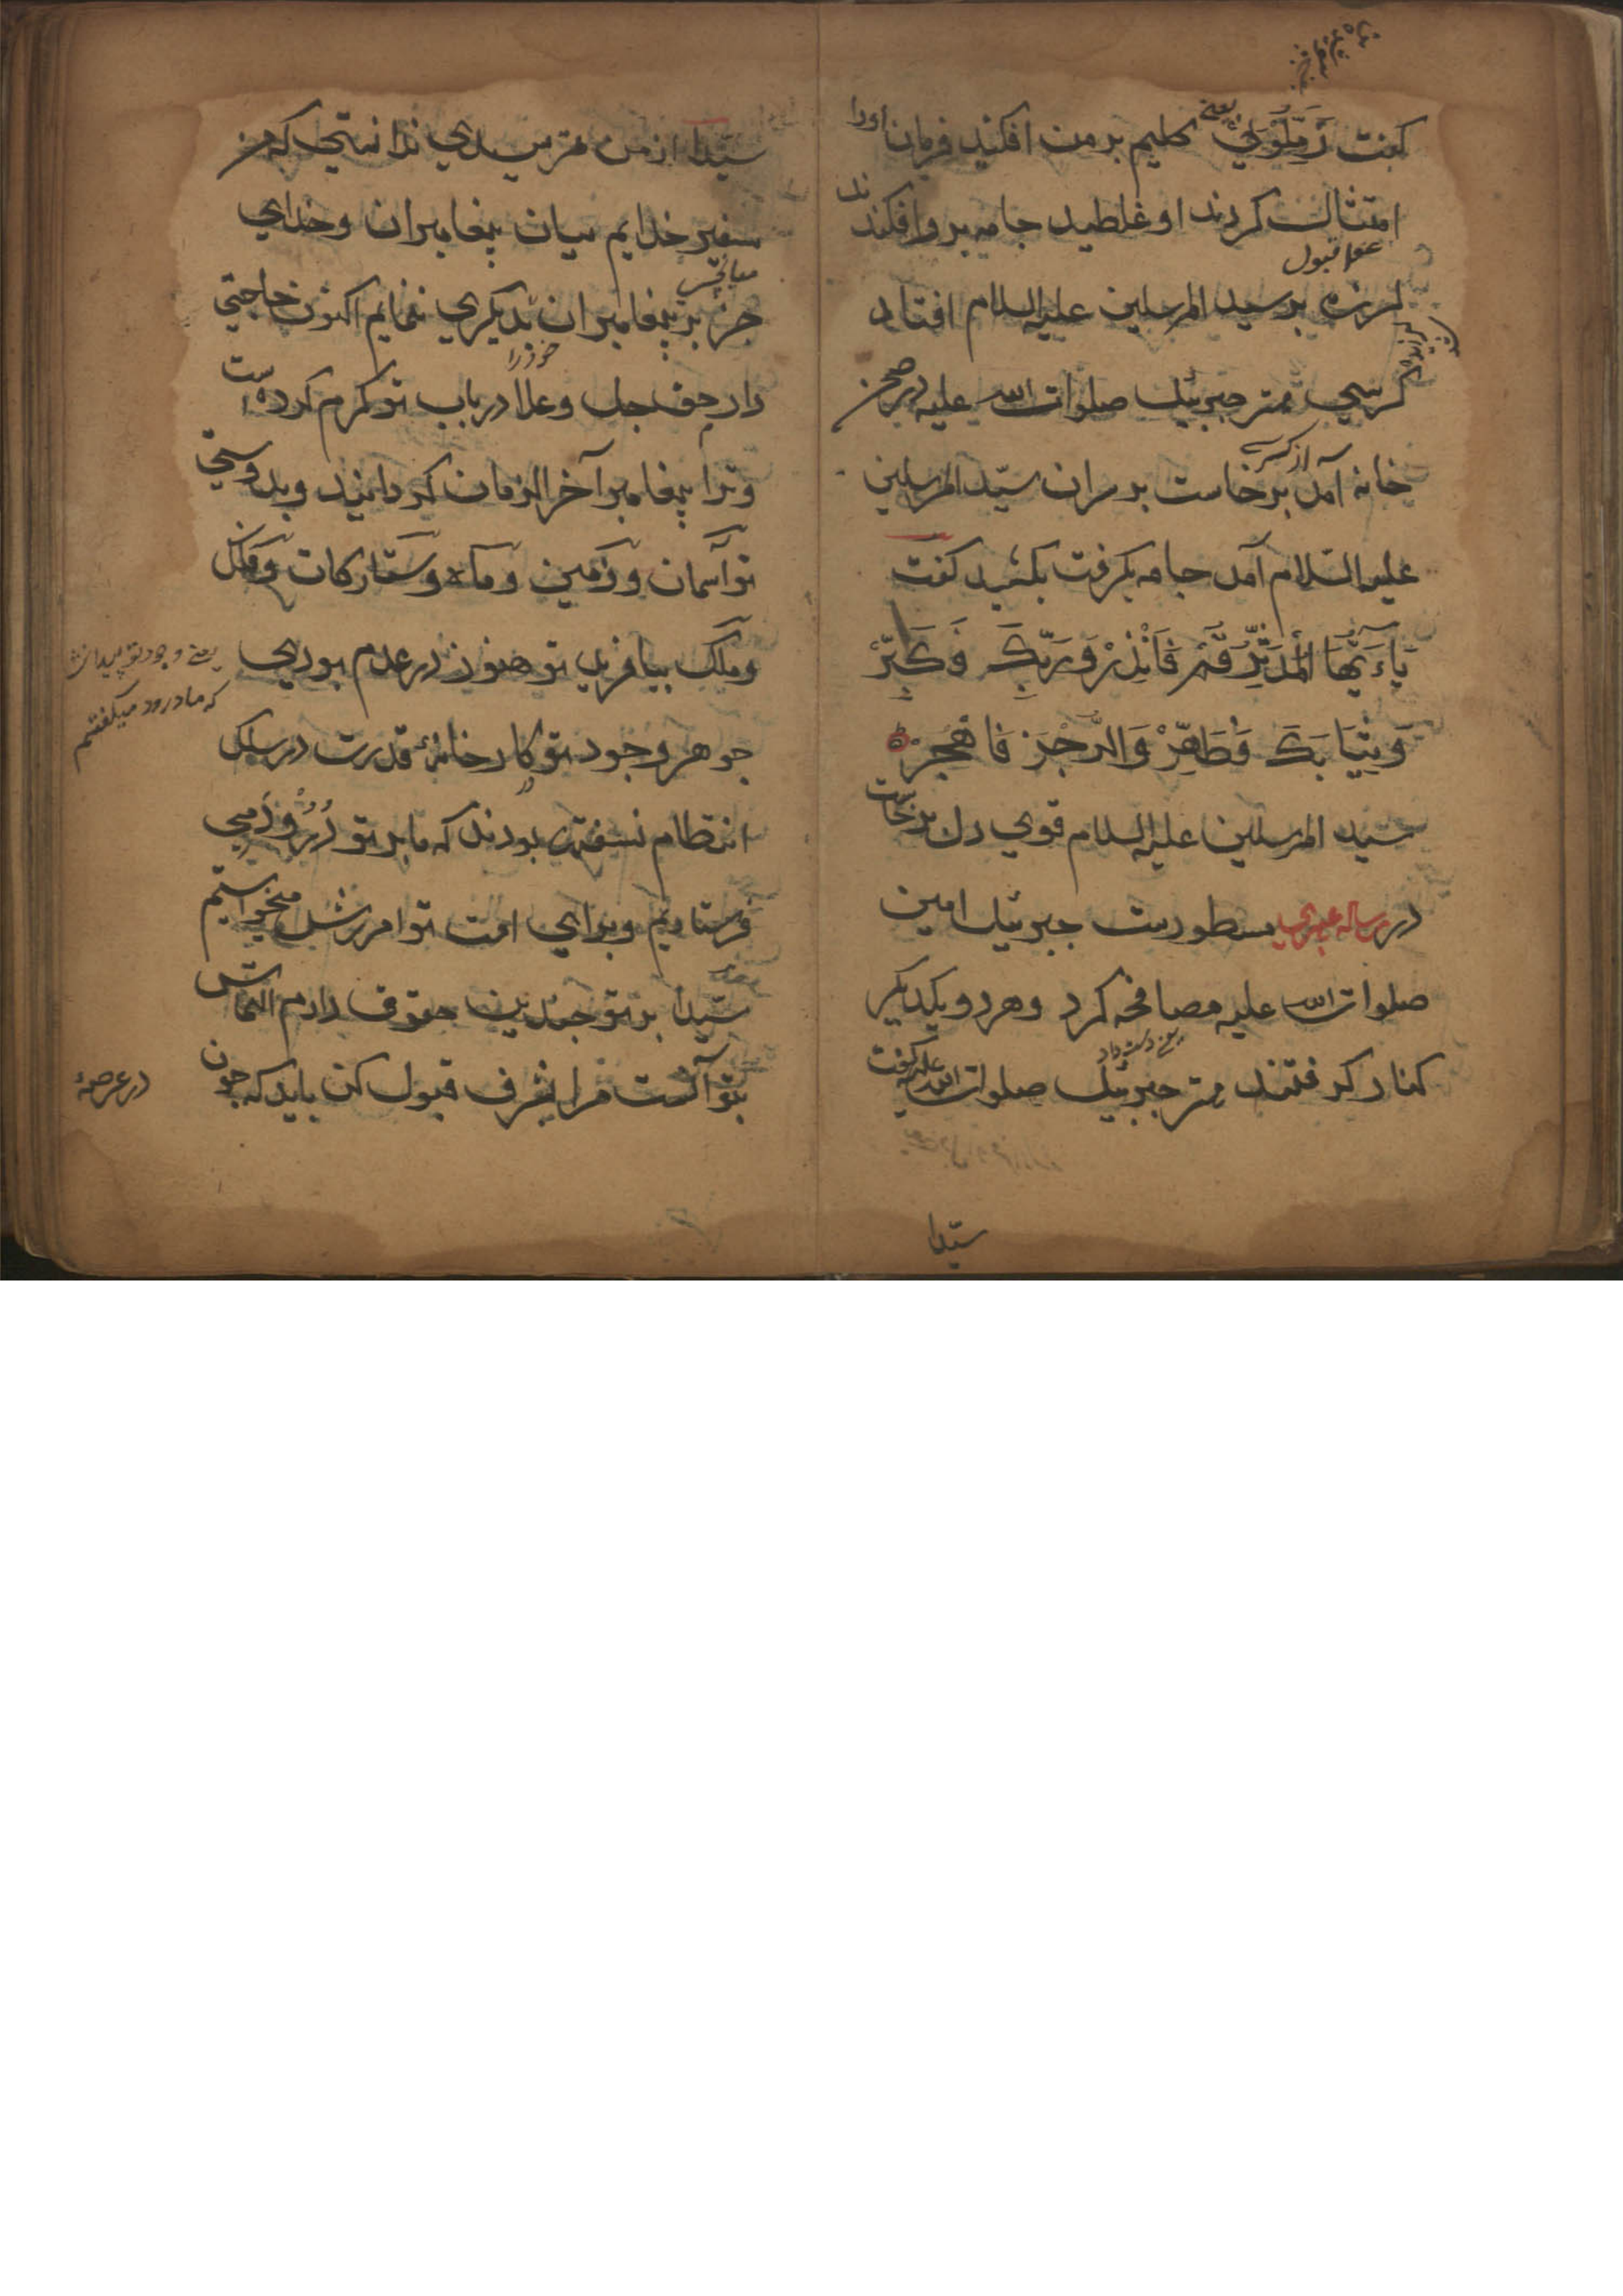 گفت زَمِّلُوْنِيْ یعنی گلیم بر من افکنید فرمان اورا
امتثال کردند او غلطید جامه برو افکندند
لرزه بر سید المرسلین علیه السلام افتاد
کرسی مهتر جبرئیل صلوات الله علیه در صحن
خانه آمد از کرسی برخاست بر سران سیّد المرسلین
علیه السّلام آمد جامه بگرفت بکشید گفت
یَاءَیُّهَا الْمُدَّثِّرُ قُمْ فَاَنْذِرْ وَرَبَّكَ فَكَبِّرْ
وَثِيَابَكَ فَطَهِّرْ وَالرُّجْزَ فَاهْجُرْ
سید المرسلین علیه السلام قوی دل برخاست
در رساله مسطورست جبرئیل امین
صلوات الله علیه مصافحه کرد و هر دو یکدیگر
کنار گرفتند مهتر جبرئیل صلوات الله علیه گفت
سیّدا
سیّدا از من مترسیدی ندانستی که من
سفیر خدایم میان پیغامبران و خدای
جز بر پیغامبران بدیگری ننمایم اکنون حاجتی
دارم حق جل وعلا در باب تو کرم کرده است
وترا پیغامبر آخر الزمان گردانید وبدوستی
تو آسمان و زمین و ماه و ستارگان و فلک
و ملک بیافرید تو هنوز در عدم بودی
جوهر وجود تو کارخانهٔ قدرت در سلک
انتظام نسفته بودند که ما بر تو درود می
فرستادیم وبرای امت تو امرزش میخواستیم
سیّدا بر تو چندین حقوق دارم التماس
بتو آنست مرا بشرف قبول کن باید که چون
در عرصهٔ
یعنی وجود تو پیدا نشد
که ما درود میگفتم